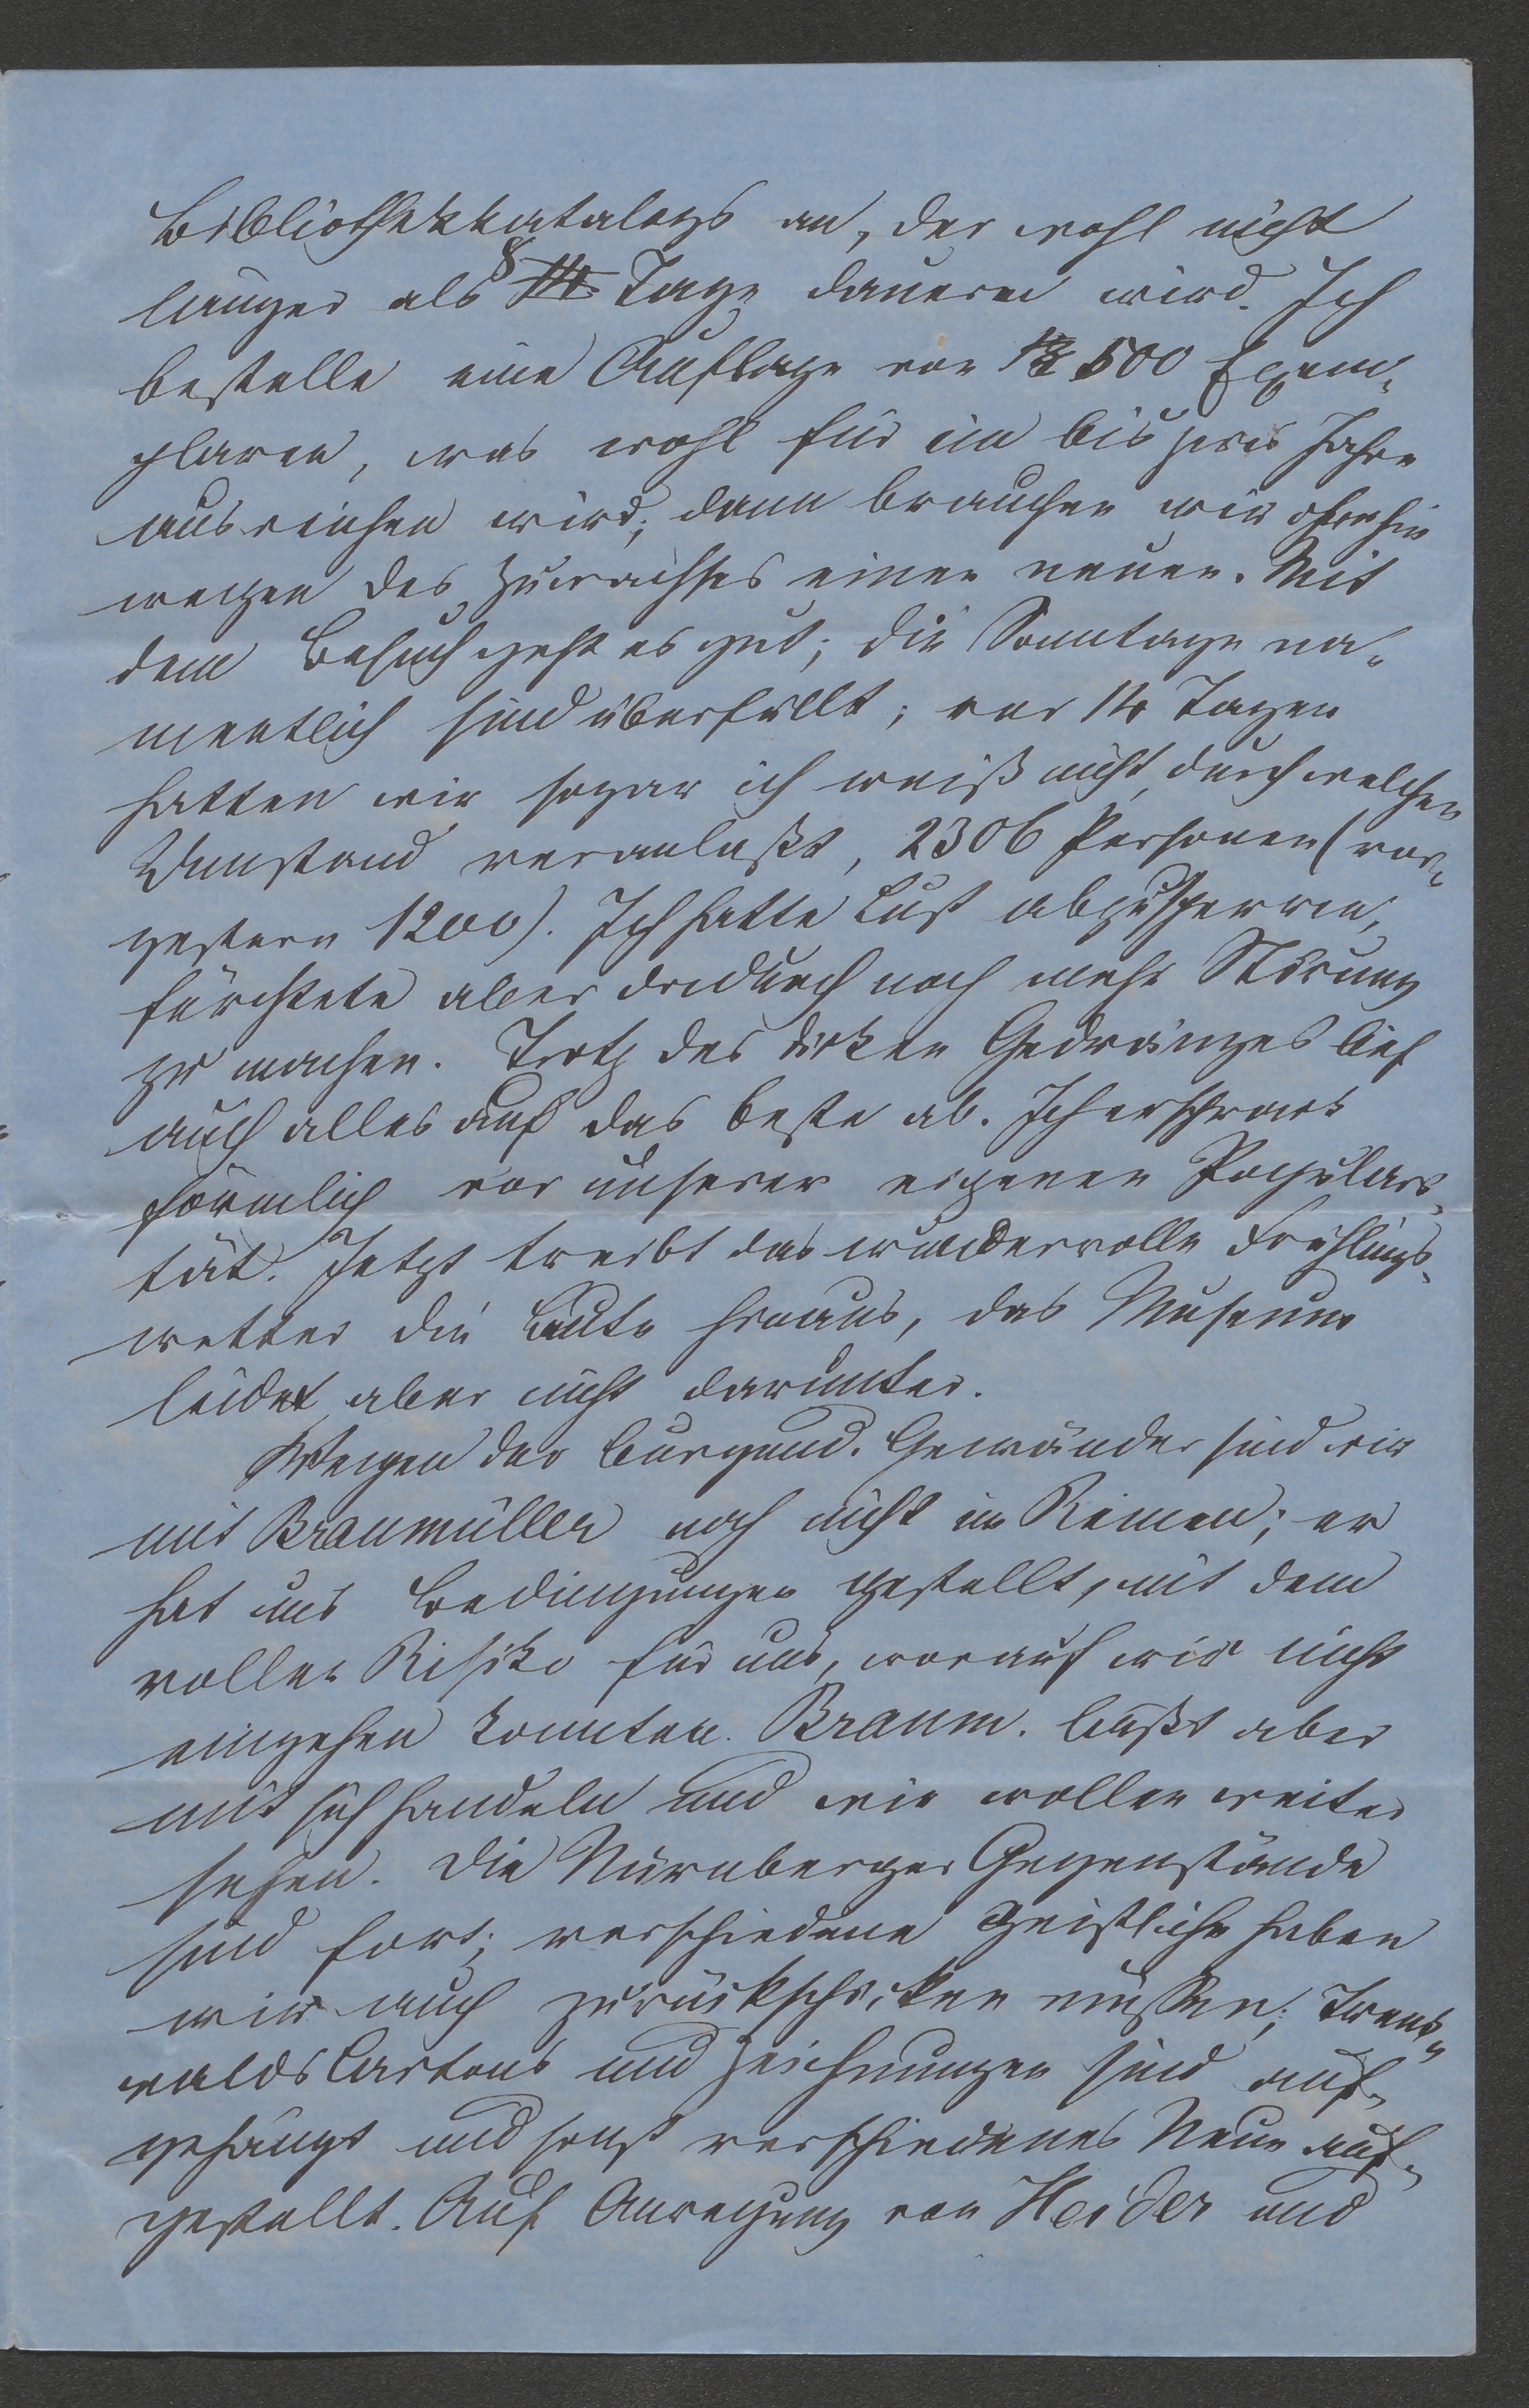 Bibliothekkatalogs an, der wohl nicht
länger als 8 14 Tage dauern wird. Ich
bestelle eine Auflage von 500 Exem-
plaren, was wohl für ein bis zwei Jahre
ausreichen wird; dann brauchen wir ohnehin
wegen des Zuwachses einen neuen. Mit
dem Besuch geht es gut; die Sonntage na-
mentlich sind überfüllt; vor 14 Tagen
hatten wir sogar ich weiß nicht, durch welchen
Umstand veranlaßt, 2306 Personen (vor-
gestern 1200). Ich hatte Lust abzusperren,
fürchtete aber dadurch noch mehr Störung
zu machen. Trotz des dicken Gedränges lief
auch alles auf das beste ab. Ich erschrack
förmlich vor unserer eigenen Populari-
tät. Jetzt treibt das wundervolle Frühlings-
wetter die Leute hinaus, das Museum
leidet aber nicht darunter.
Wegen der burgund. Gewänder sind wir
mit Braumüller noch nicht im Reinen; er
hat uns Bedingungen gestellt, mit dem
vollen Risiko für uns, worauf wir nicht
eingehen konnten. Braum. läßt aber
mit sich handeln und wir wollen weiter
sehen. Die Nürnberger Gegenstände
sind fort; verschiedene geistliche haben
wir auch zurückschicken müssen; Trenk-
walds Cartons und Zeichnungen sind auf-
gehängt und sonst verschiedenes Neue auf-
gestellt. Auf Anregung von Heider und